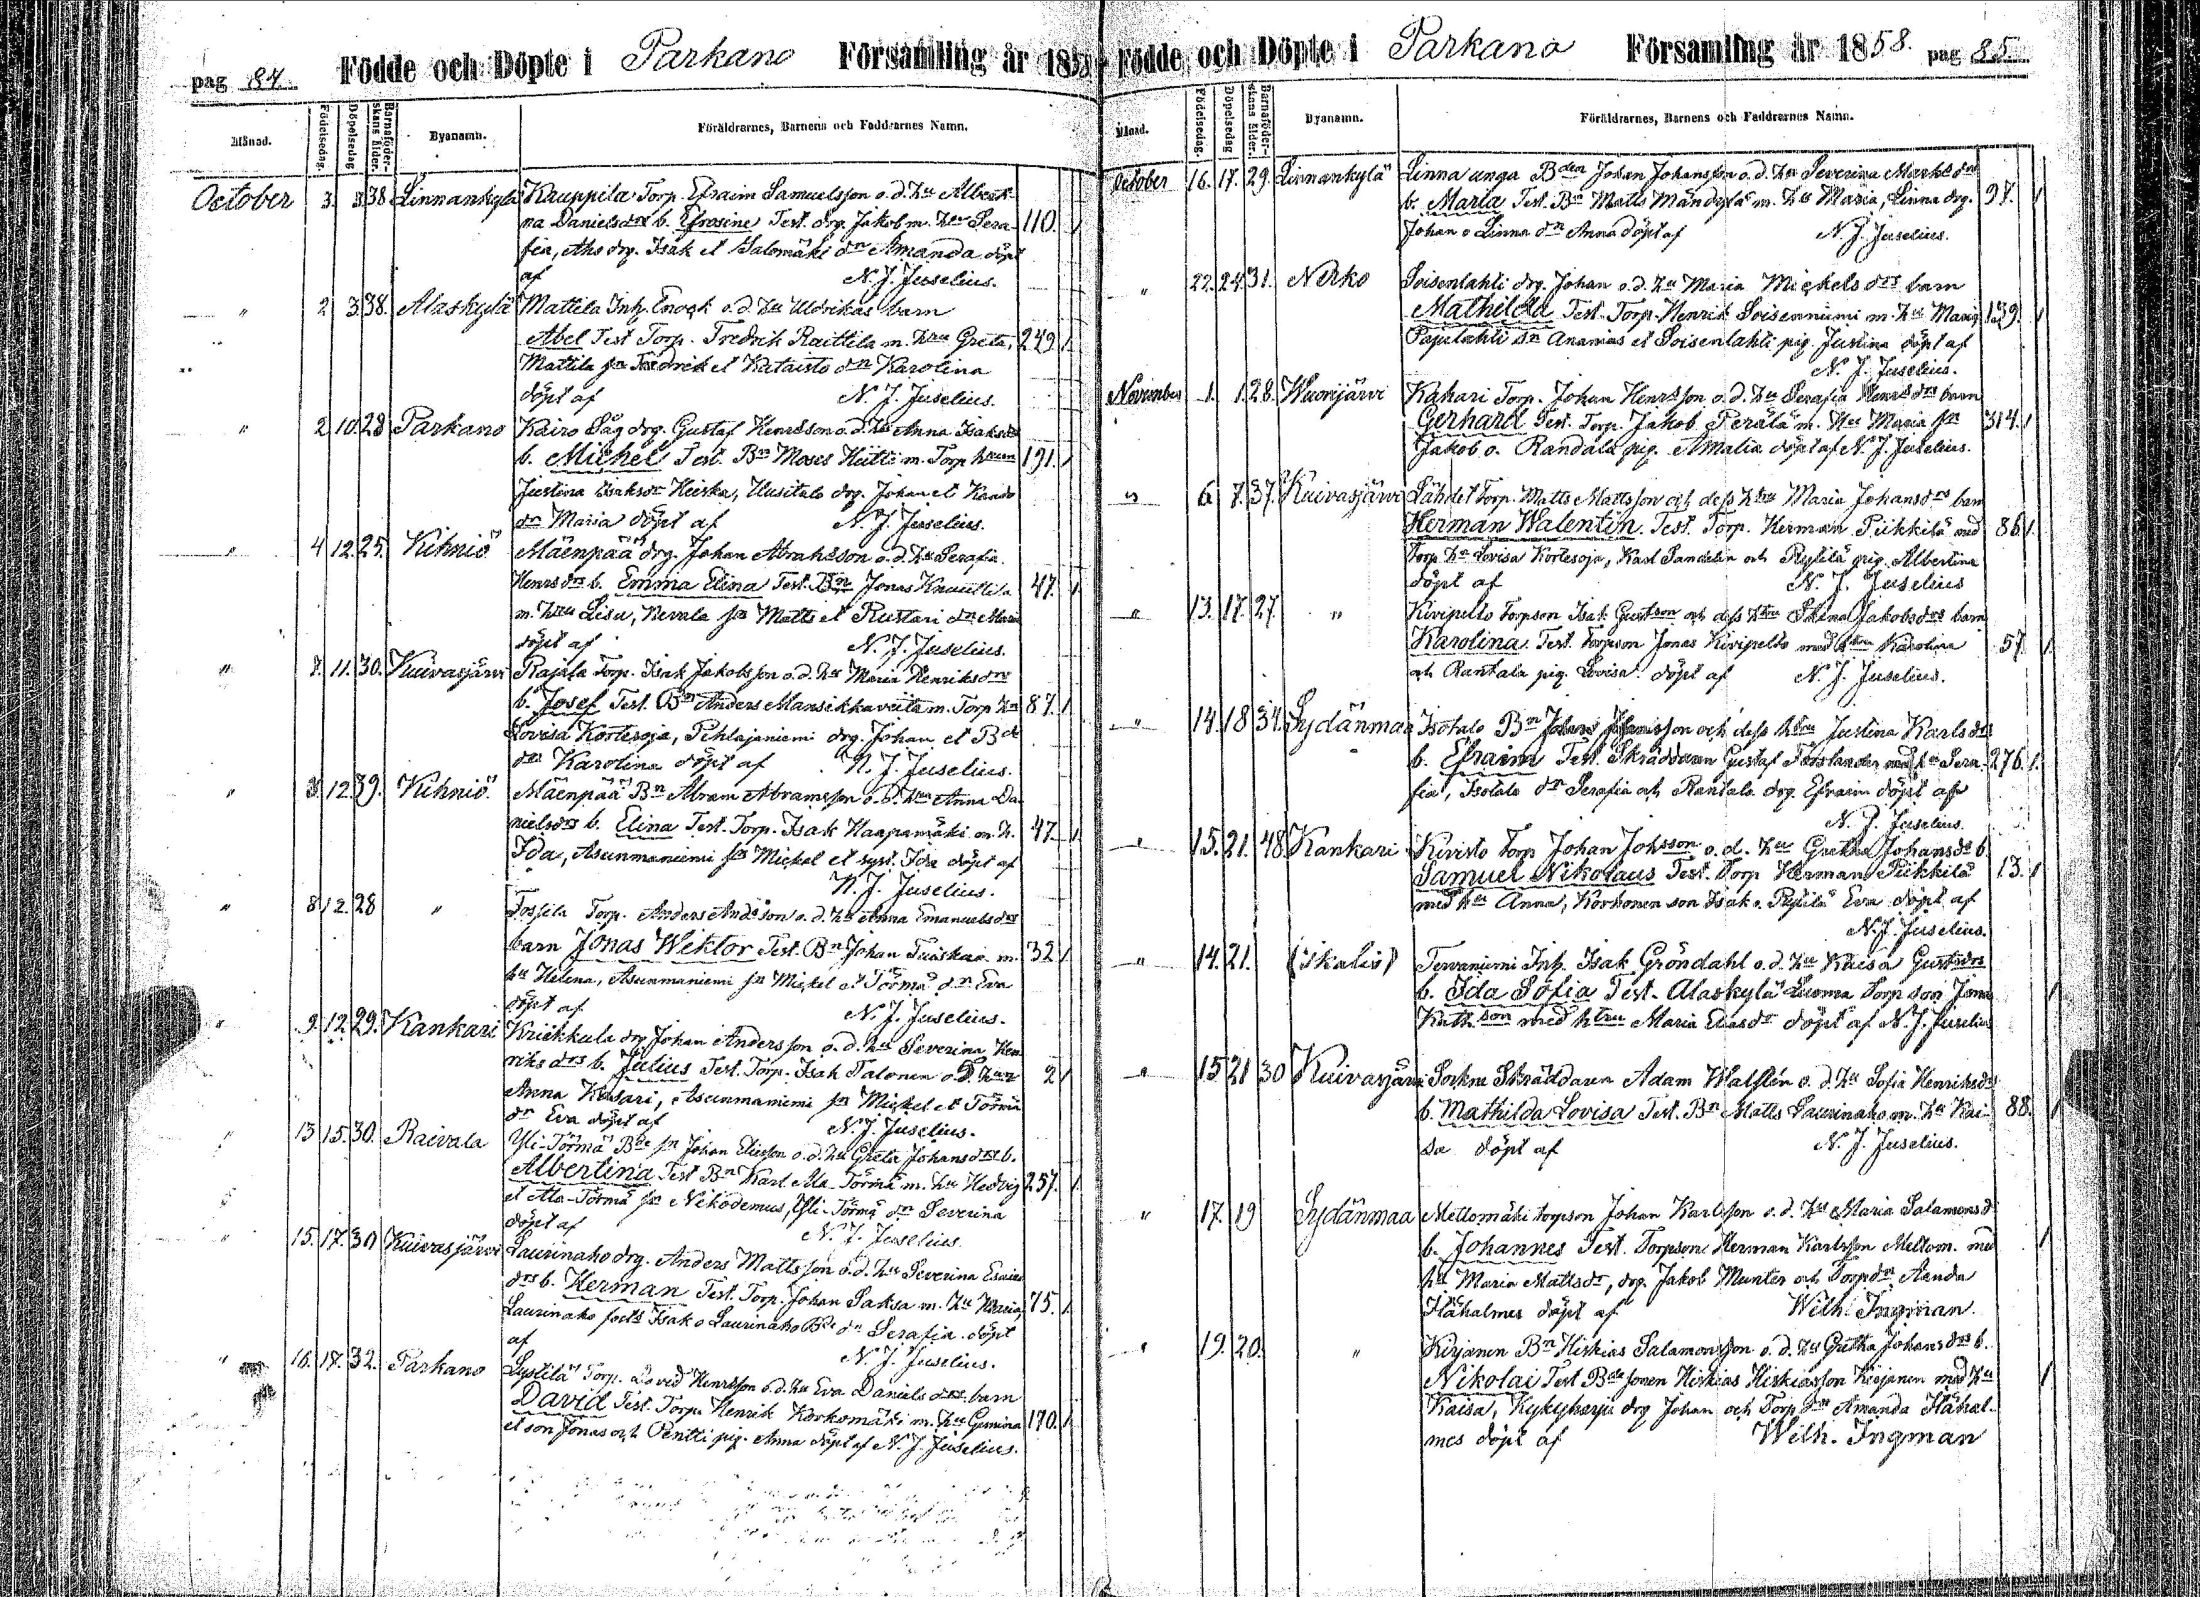 pag 84. Födde och Döpte i Parkano Församling år 1858
Månad. Födelsedag. Döpelsedag Barnaföderskans ålder. Byanamn. Föräldrarnes, Barnens och Faddrarnes Namn.
October 3. 3 38 Linnankylä Kauppila Torp. Efraim Samuelsson o.d. hu Alberti-
na Danielsdr b. Efrosine Test. drg. Jakob m. hu Sera- 110. 1
fia, Aho drg. Isak et Salomäki dn Amanda döpt
af N. J. Juselius.
" 2 3 38. Alaskylä Mattila Inh. Enock o.d. hu Uldrikas barn
Abel Test Torp. Fredrik Raittila m. hru Greta, 249 1.
Mattila sn Fredrik et Kataisto dn Karolina
döpt af N. J. Juselius.
" 2 10. 28 Parkano Kairo Såg drg. Gustaf Henrsson o.d. hu Anna Isaksdr
b. Michel Test. Bn Moses Hutti m. Torp hrun 191. 1
Justina Isaksdr Heiska, Uusitalo drg. Johan et
dn Maria döpt af N. J. Juselius.
" 4 12. 25. Kihniö Mäenpää drg. Johan Abrahsson o.d. hu Serafia
Henrsdr b. Emma Elina Test. Bn Jonas Knuuttila 47. 1
m. hru Lisa, Nevala sn Matts et Rustari dn Maria
döpt af N. J. Juselius.
" 7. 11. 30. Kuivasjärvi Rajala Torp. Isak Jakobsson o.d. hu Maria Henriksdr
b. Josef Test. Bn Anders Mansikkaviita m. Torp hu 87. 1
Lovisa Kortesoja, Pihlajaniemi drg. Johan et Bde
dn Karolina döpt af N. J. Juselius.
" 3. 12. 39. Kihniö. Mäenpää Bn Abram Abramsson o.d. hu Anna Da-
nielsdr b. Elina Test. Torp. Isak Haapamäki m. h. 47. 1
Ida, Asunmaniemi sn Mickel et syst. Ida döpt af
N. J. Juselius.
" 8 12. 28 " Fossila Torp. Anders Andsson o.d. hu Anna Emanuelsdr
barn Jonas Wektor Test. Bn Johan Tuiskua m. 32 1
hu Helena, Asunmaniemi sn Mickel et Törmä dn Eva
döpt af N. J. Juselius.
" 9. 12. 29. Kankari Kriikkula drg Johan Andersson o.d. hu Severina Hen-
riksdr b. Julius Test. Torp. Isak Talonen o.d. hu 2 1
Anna Kasari, Asunmaniemi sn Mickel et Törmä
dn Eva döpt af N. J. Juselius.
13 15. 30. Raivala Yli-Törmä Bde sn Johan Eliesson o.d. hu Greta Johansdr b.
Albertina Test Bn Karl Ala-Törmä m. hu Hedvig 257. 1.
et Ala-Törmä sn Nikodemus, Yli-Törmä dn Severina
döpt af N. J. Juselius.
15. 17. 30 Kuivasjärvi Laurinaho drg. Anders Mattsson o.d. hu Severina Esaias
dr b. Herman Test. Torp. Johan Saksa m. hu Maria, 75. 1
Laurinaho Isak o Laurinaho Bde dn Serafia döpt
af N. J. Juselius.
" 16. 17. 32. Parkano Lystilä Torp. David Henrsson o.d. hu Eva Danielsdr barn
David Test. Torp. Henrik Korkomäki m. hu Gemina 170. 1
et son Jonas och Pentti pig. Anna döpt af N. J. Juselius.
Födde och Döpte i Parkano Församling år 1858. pag 85.
Månad. Födelsedag. Döpelsedag Barnaföderskans ålder. Byanamn. Föräldrarnes, Barnens och Faddrarnes Namn.
October 16. 17. 29. Linnankylä Linna unga Bden Johan Johansson o.d. hu Severina Marksdr
b. Maria Test. Bn Matts Mändylä m. hu Maria, Linna drg. 97. 1
Johan o Linna dn Anna döpt af N. J. Juselius.
" 22. 24. 31. Nerko Soisenlahti drg. Johan o.d. hu Maria Mickelsdr barn
Mathilda Test. Torp. Henrik Soisenniemi m. hu Maria 139. 1
Papilahti dn Ananias et Soisenlahti pig. Justina döpt af
N. J. Juselius.
November 1. 1. 28. Wuorijärvi Kahari Torp. Johan Henrsson o.d. hu Serafia Henrsdr barn
Gerhard Test. Torp. Jakob Perälä m. hu Maria sn 314. 1
Jakob o. Randala pig. Amalia döpt af N. J. Juselius.
" 6. 7. 37. Kuivasjärvi Lähdet Torp. Matts Mattsson och dess hru Maria Johansdr barn
Herman Walentin. Test. Torp. Herman Piikkilä med 86. 1.
Torp. hu Lovisa Kortesoja, Karl Sandelin och Rytilä pig. Albertina
döpt af N. J. Juselius
" 13. 17. 27. " Kivipelto Torpson Isak Gustson och dess hru Stina Jakobsdr barn
Karolina. Test. Torpson Jonas Kivipelto med hru Karolina 57 1
och Rantala pig. Lovisa. döpt af N. J. Juselius.
" 14. 18 34. Sydänmaa Isotalo Bn Johan Johansson och dess hru Justina Karlsdr
b. Efraim Test. Skräddaren Gustaf Forslander med hu Sera- 276. 1.
fia, Isotalo dn Serafia och Rantala drg. Efraim döpt af
N. J. Juselius.
" 15. 21. 48. Kankari Kivisto Torp Johan Johsson o.d. hu Gretha Johansdr b.
Samuel Nikolaus Test. Torp Herman Piikkilä 13. 1
med hu Anna, Korhonen son Isak o. Rytilä Eva döpt af
N. J. Juselius.
" 14. 21. (ikalis) Tervaniemi Inh. Isak Gröndahl o.d. hu Kaisa Gustsdr
b. Ida Sofia Test. Alaskylä Luoma Torpson Jona 1
son med hru Maria Eliasdr döpt af N. J. Juselius
" 15 21 30 Kuivasjärvi Sockne Skräddaren Adam Walstén o.d. hu Sofia Henriksdr
b. Mathilda Lovisa Test. Bn Matts Laurinaho m. hu Kai- 88. 1
sa döpt af N. J. Juselius.
" 17. 19 Sydänmaa Mettomäki torpson Johan Karlsson o.d. hu Maria Salamonsdr
b. Johannes Test. Torpson Herman Karlsson Mettom. med 1
hu Maria Mattsdr, drg. Jakob Munter och Torpdn Aanda
Hähalmes döpt af Wilh. Ingman.
" 19. 20. " Kirjanen Bn Hiskias Salamonsson o.d. hu Gretha Johansdr b.
Nikolai Test Bde sonen Hiskias Hiskiasson Kirjanen med hu 1
Kaisa, Kykyharju drg Johan och Torpdn Amanda Hähal-
mes döpt af Wilh. Ingman